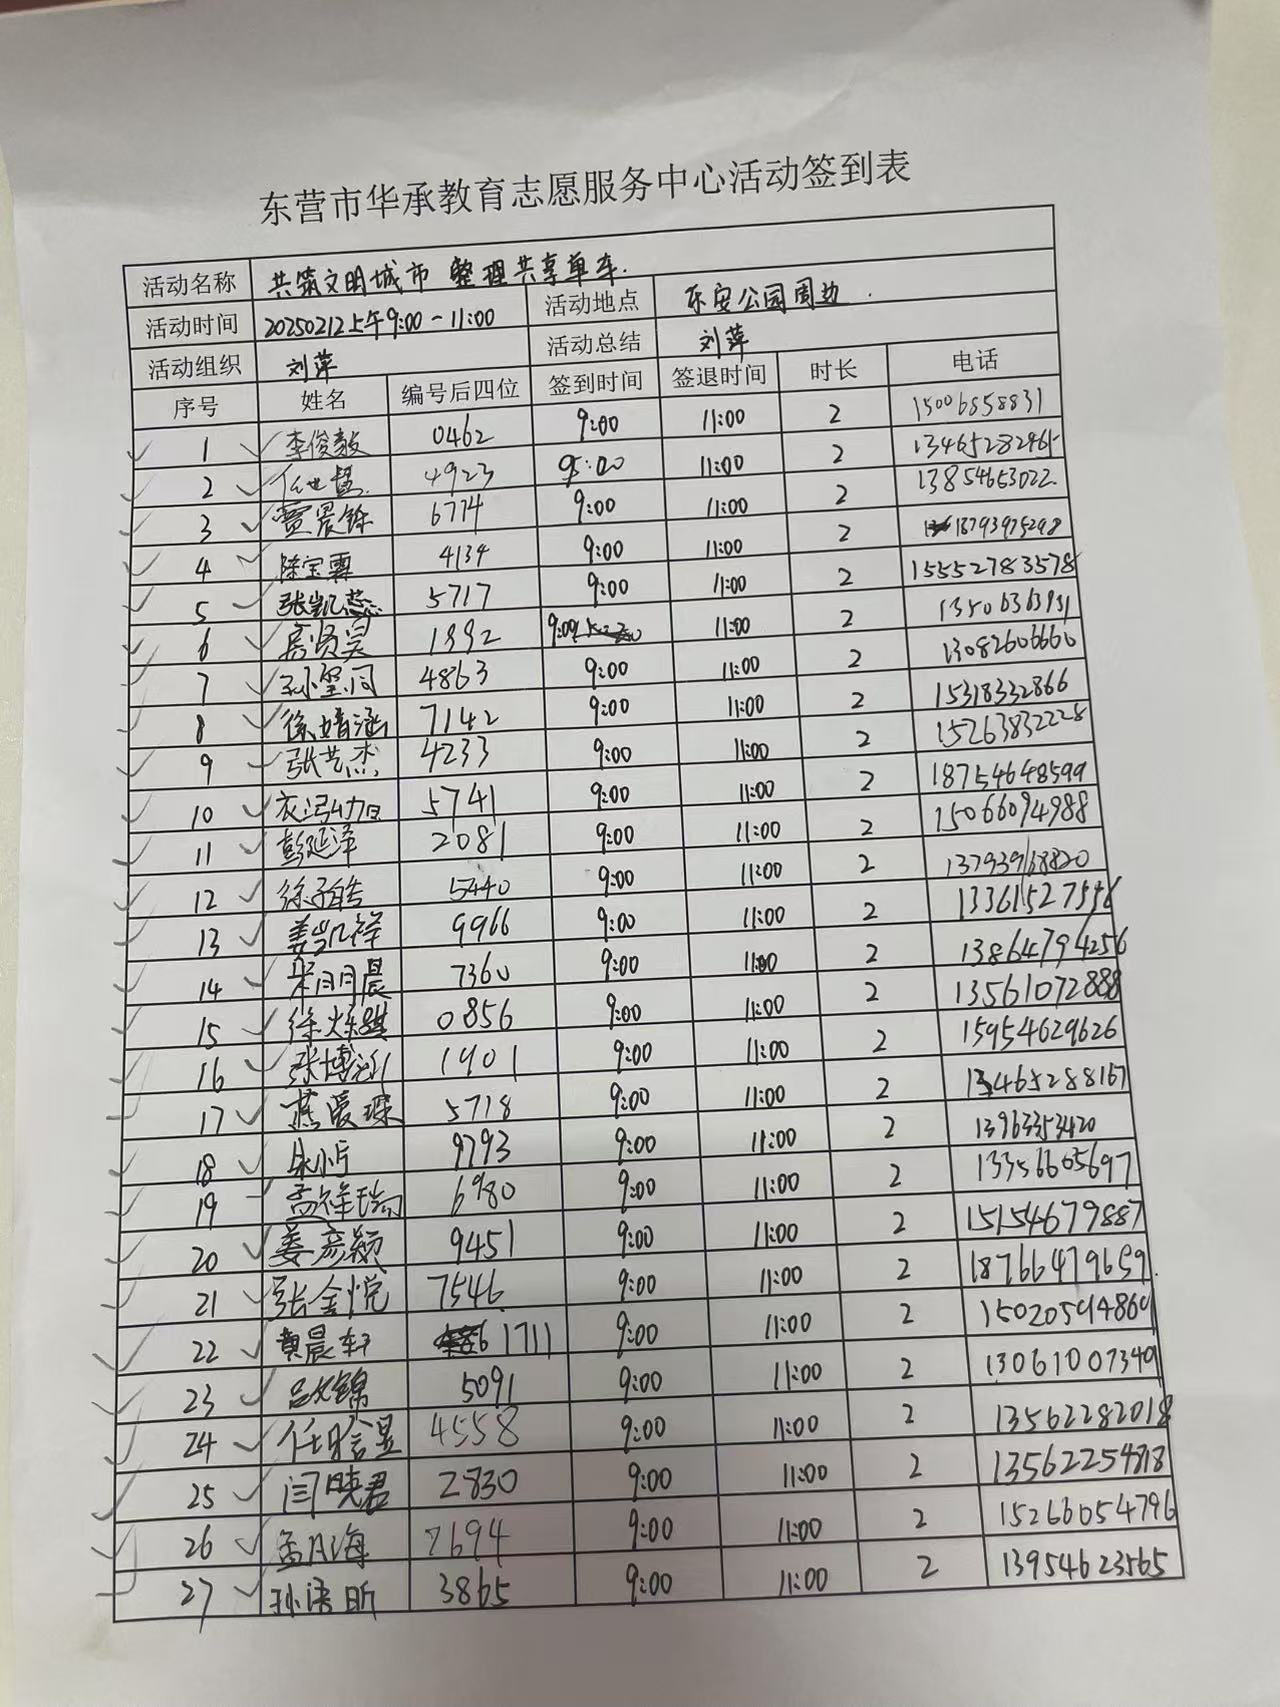 东营市华承教育志愿服务中心活动签到表
活动名称 共筑文明城市 整理共享单车.
活动时间 20250212上午9:00-11:00 活动地点 东安公园周边.
活动组织 刘萍 活动总结 刘萍
序号 姓名 编号后四位 签到时间 签退时间 时长 电话
1 李俊毅 0462 9:00 11:00 2 15006858831
2 4923 11:00 2 13465282965
3 贾晨铄 6774 9:00 11:00 2 13854653022
4 陈宝霖 4134 9:00 11:00 2 18793975298
5 张凯蕊 5717 9:00 11:00 2 15552783578
6 高贤昊 1992 9:00 11:00 2 13506363931
7 孙玺同 4863 9:00 11:00 2 13082606660
8 徐婧涵 7142 9:00 11:00 2 15318332866
9 张艺杰 4233 9:00 11:00 2 15263832228
10 5741 9:00 11:00 2 18754648599
11 彭延泽 2081 9:00 11:00 2 15066094988
12 徐子皓 5440 9:00 11:00 2 13793968820
13 姜凯祥 9966 9:00 11:00 2 13361527556
14 宋明晨 7360 9:00 11:00 2 13864794256
15 徐焕骐 0856 9:00 11:00 2 13561072888
16 张博 1901 9:00 11:00 2 15954629626
17 燕爱琛 5718 9:00 11:00 2 13465288167
18 9793 9:00 11:00 2 13963353420
19 孟祥瑞 6980 9:00 11:00 2 13356605697
20 姜彦颖 9451 9:00 11:00 2 15154679887
21 张金悦 7546 9:00 11:00 2 18766479659
22 黄晨轩 1711 9:00 11:00 2 15020594869
23 吕文锦 5091 9:00 11:00 2 13061007349
24 任晗昱 4558 9:00 11:00 2 13562282018
25 闫映君 2830 9:00 11:00 2 13562254818
26 孟凡海 7694 9:00 11:00 2 15266054796
27 孙语昕 3865 9:00 11:00 2 13954623565